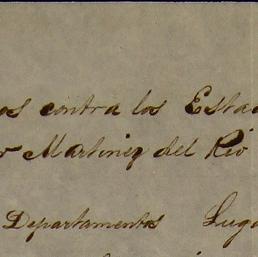 os contra los Esta
r Martinez del Rio
Departamentos Luga